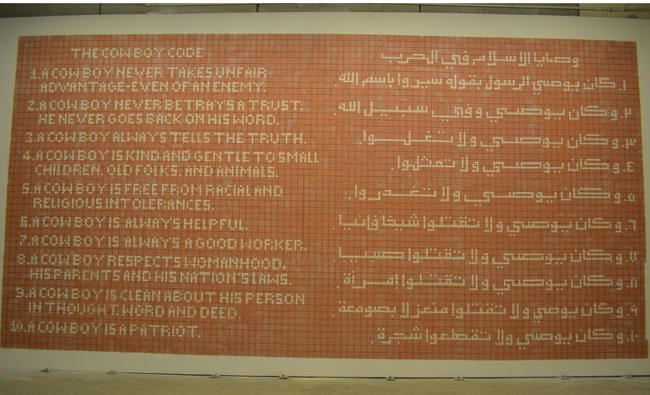 THE COWBOY CODE
1.A COWBOY NEVER TAKES UNFAIR
ADVANTAGE-EVEN OF AN ENEMY.
2.A COWBOY NEVER BETRAYS A TRUST.
HE NEVER GOES BACK ON HIS WORD.
3.A COWBOY ALWAYS TELLS THE TRUTH.
4.A COWBOY IS KIND AND GENTLE TO SMALL
CHILDREN, OLD FOLKS, AND ANIMALS.
5.A COWBOY IS FREE FROM RACIAL AND
RELIGIOUS INTOLERANCES.
6.A COWBOY IS ALWAYS HELPFUL.
7.A COWBOY IS ALWAYS A GOOD WORKER.
8.A COWBOY RESPECTS WOMANHOOD,
HIS PARENTS AND HIS NATION'S LAWS.
9.A COWBOY IS CLEAN ABOUT HIS PERSON
IN THOUGHT, WORD AND DEED.
10.A COWBOY IS A PATRIOT.
وصايا الاسلام في الحرب
١.كان يوصي الرسول بقوله سيروا باسم الله.
٢.وكان يوصي وفي سبيل الله.
٣.وكان يوصي ولا تغلوا.
٤.وكان يوصي ولا تمثلوا.
٥.وكان يوصي ولا تغدروا.
٦.وكان يوصي ولا تقتلوا شيخا فانيا.
٧.وكان يوصي ولا تقتلوا صبيا.
٨.وكان يوصي ولا تقتلوا امرأة.
٩.وكان يوصي ولا تقتلوا منعزلا بصومعة.
١٠.وكان يوصي ولا تقطعوا شجرة.